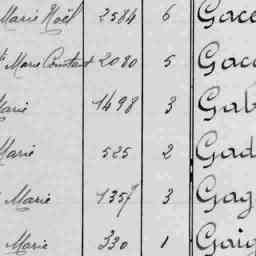 Marie Noël 2584 6 Gace
te Marie Constant 2080 5 Gac
Marie 1498 3 Gab
Marie 525 2 Gad
Marie 1357 3 Gag
Marie 330 1 Gaig